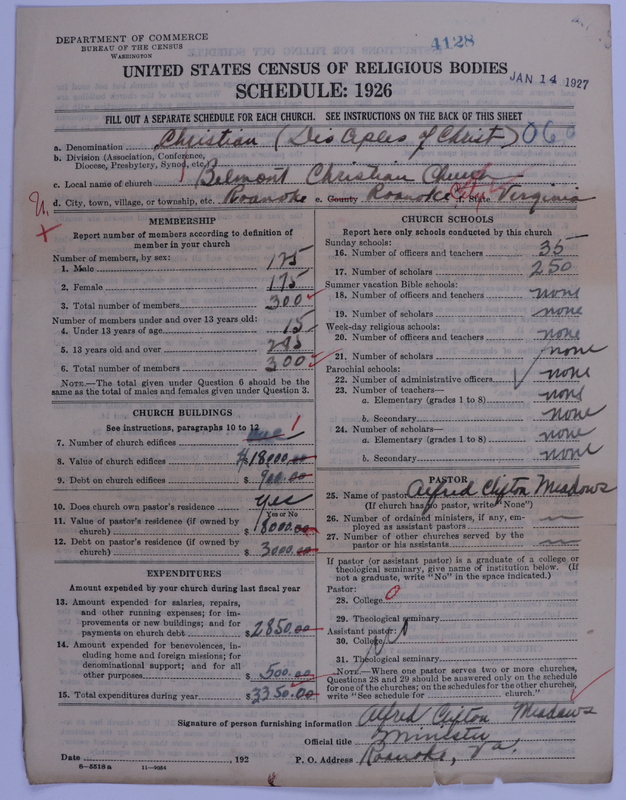 DEPARTMENT OF COMMERCE
BUREAU OF THE CENSUS
WASHINGTON
4128
UNITED STATES CENSUS OF RELIGIOUS BODIES
JAN 14 1927
SCHEDULE: 1926
FILL OUT A SEPARATE SCHEDULE FOR EACH CHURCH. SEE INSTRUCTIONS ON THE BACK OF THIS SHEET
a. Denomination Christian (Disciples of Christ) 060
b. Division (Association, Conference, Diocese, Presbytery, Synod, etc.)
c. Local name of church Belmont Christian Church
d. City, town, village, or township, etc. Roanoke e. County Roanoke City f. State Virginia
MEMBERSHIP
Report number of members according to definition of member in your church
Number of members, by sex:
1. Male 125
2. Female 175
3. Total number of members 300
Number of members under and over 13 years old:
4. Under 13 years of age 15
5. 13 years old and over 285
6. Total number of members 300
NOTE.—The total given under Question 6 should be the same as the total of males and females given under Question 3.
CHURCH BUILDINGS
See instructions, paragraphs 10 to 12
7. Number of church edifices one 1
8. Value of church edifices $18000.00
9. Debt on church edifices $ 900.00
10. Does church own pastor's residence? yes
Yes or No
11. Value of pastor's residence (if owned by church) $ 8000.00
12. Debt on pastor's residence (if owned by church) $ 3000.00
EXPENDITURES
Amount expended by your church during last fiscal year
13. Amount expended for salaries, repairs, and other running expenses; for improvements or new buildings; and for payments on church debt $2850.00
14. Amount expended for benevolences, including home and foreign missions; for denominational support; and for all other purposes $ 500.00
15. Total expenditures during year $3350.00
CHURCH SCHOOLS
Report here only schools conducted by this church
Sunday schools:
16. Number of officers and teachers 35
17. Number of scholars 250
Summer vacation Bible schools:
18. Number of officers and teachers none
19. Number of scholars none
Week-day religious schools:
20. Number of officers and teachers none
21. Number of scholars none
Parochial schools:
22. Number of administrative officers none
23. Number of teachers—
a. Elementary (grades 1 to 8) none
b. Secondary none
24. Number of scholars—
a. Elementary (grades 1 to 8) none
b. Secondary none
PASTOR
25. Name of pastor Alfred Clifton Meadows
(If church has no pastor, write "None")
26. Number of ordained ministers, if any, employed as assistant pastors
27. Number of other churches served by the pastor or his assistants
If pastor (or assistant pastor) is a graduate of a college or theological seminary, give name of institution below. (If not a graduate, write "No" in the space indicated.)
Pastor:
28. College 0
29. Theological seminary
Assistant pastor:
30. College
31. Theological seminary
NOTE.—Where one pastor serves two or more churches, Questions 28 and 29 should be answered only on the schedule for one of the churches; on the schedules for the other churches, write "See schedule for church."
Signature of person furnishing information Alfred Clifton Meadows
Official title Minister
Date , 192
P. O. Address Roanoke, Va.
8—5518 a 11—9054